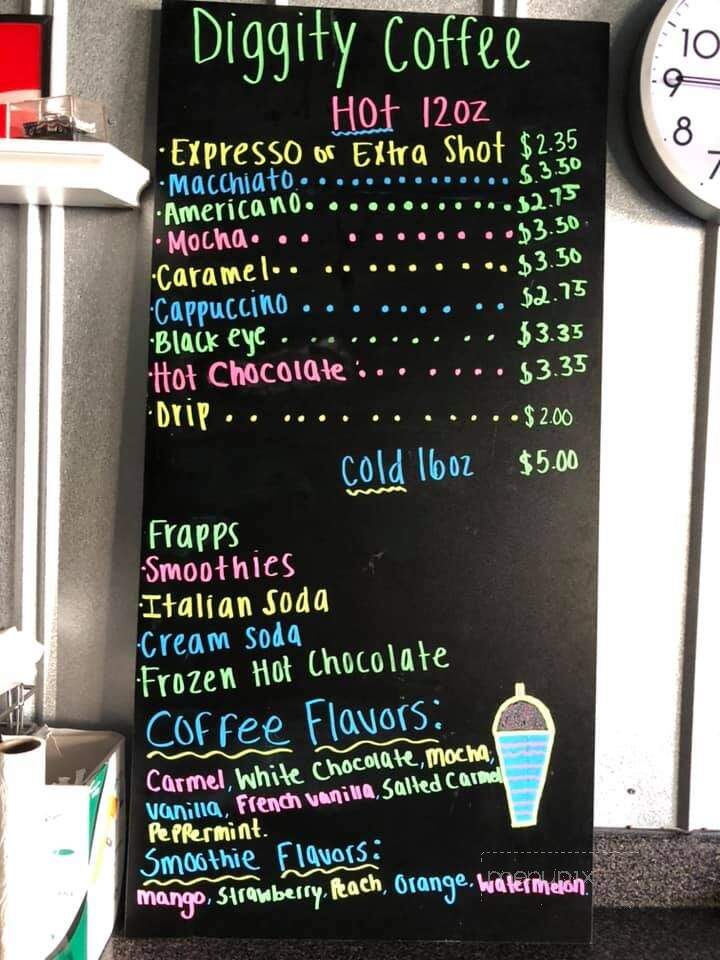 Diggity Coffee
Hot 12oz
· Expresso or Extra Shot $2.35
· Macchiato............. $3.50
· Americano............ $2.75
· Mocha... ........ $3.50
· Caramel.. .. ....... $3.50
· Cappuccino ........ $2.75
· Black eye ......... $3.35
· Hot Chocolate: ....... $3.35
· Drip .. ... .......... $2.00
Cold 16oz $5.00
Frapps
· Smoothies
· Italian Soda
· Cream soda
· Frozen Hot Chocolate
Coffee Flavors:
Carmel, White Chocolate, Mocha,
Vanilla, French vanilla, Salted Carmel
Peppermint.
Smoothie Flavors:
mango, Strawberry, Peach, Orange. Watermelon.
menupix
10
9
8
7